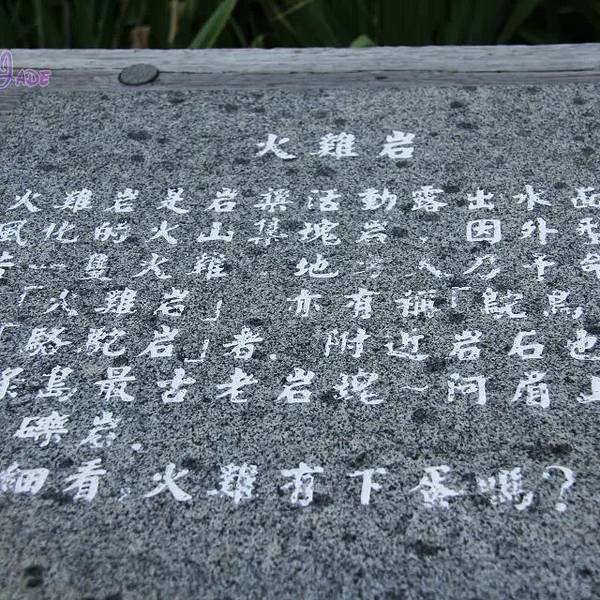 JADE
火雞岩
火雞岩是岩漿活動露出水面
風化的火山集塊岩，因外型
一隻火雞，地方人乃予命
「火雞岩」亦有稱「鴕鳥
「駱駝岩」者．附近岩石也
島最古老岩塊～阿眉山
礫岩．
細看，火雞有下蛋嗎？